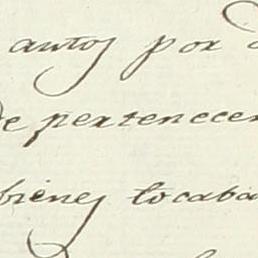 autos por
de pertenecer
bienes tocaba